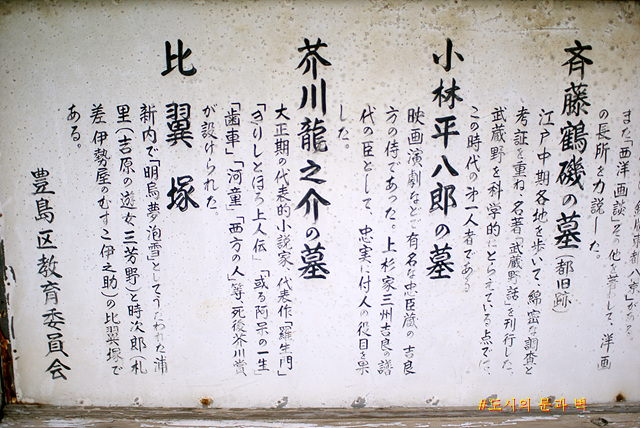 また「西洋画談」その他を著して、洋画
の長所を力説した。
斉藤鶴磯の墓（都旧跡）
江戸中期各地を歩いて、綿密な調査と
考証を重ね、名著「武蔵野話」を刊行した。
武蔵野を科学的にとらえている点で、
この時代の第一人者である
小林平八郎の墓
映画演劇などで有名な忠臣蔵の吉良
方の侍であった。上杉家三州吉良の譜
代の臣として、忠実に付人の役目を果
した。
芥川龍之介の墓
大正期の代表的小説家、代表作「羅生門」
「きりしとほろ上人伝」「或る阿呆の一生」
「歯車」「河童」「西方の人」等、死後芥川賞
が設けられた。
比翼塚
新内で「明烏夢泡雪」としてうたわれた浦
里（吉原の遊女三芳野）と時次郎（札
差伊勢屋のむすこ伊之助）の比翼塚で
ある。
豊島区教育委員会
#도사의 문과 벽